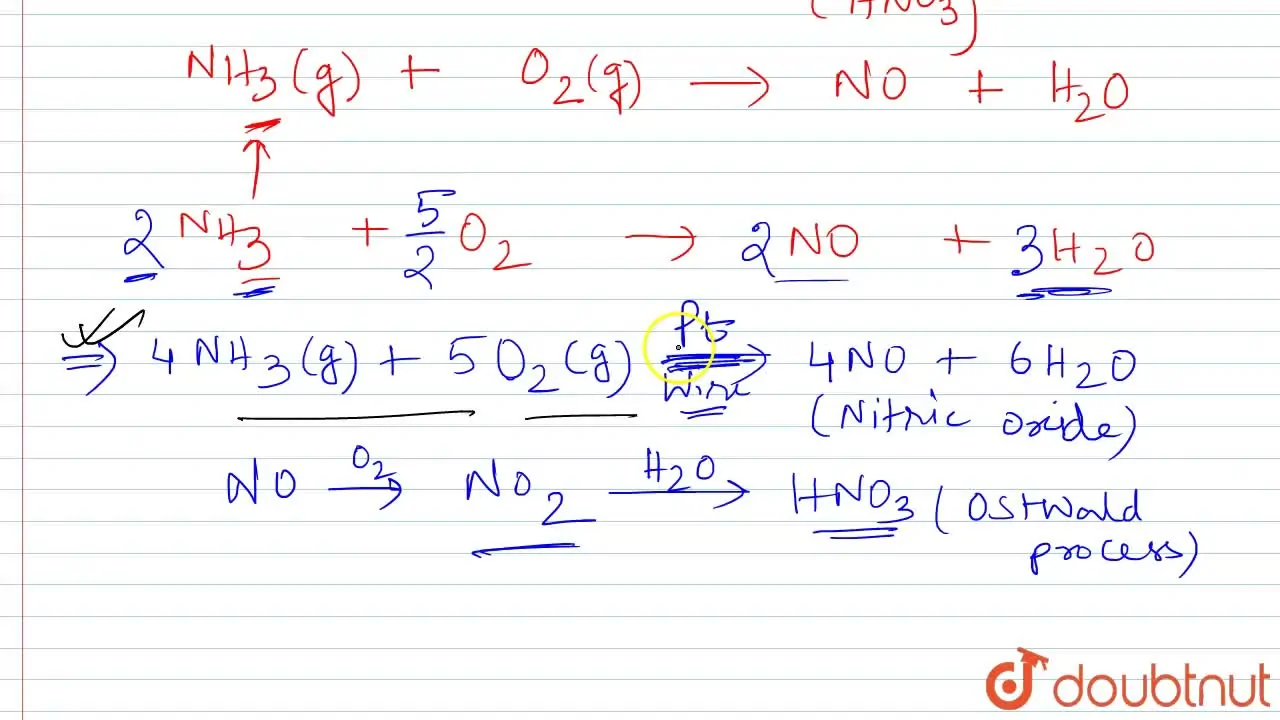 (HNO3)
NH3(g) + O2(g) → NO + H2O
2NH3 + 5/2 O2 → 2NO + 3H2O
⇒ 4NH3(g) + 5O2(g) Pt wire → 4NO + 6H2O
(Nitric oxide)
NO O2 → NO2 H2O → HNO3 (Ostwald
process)
doubtnut